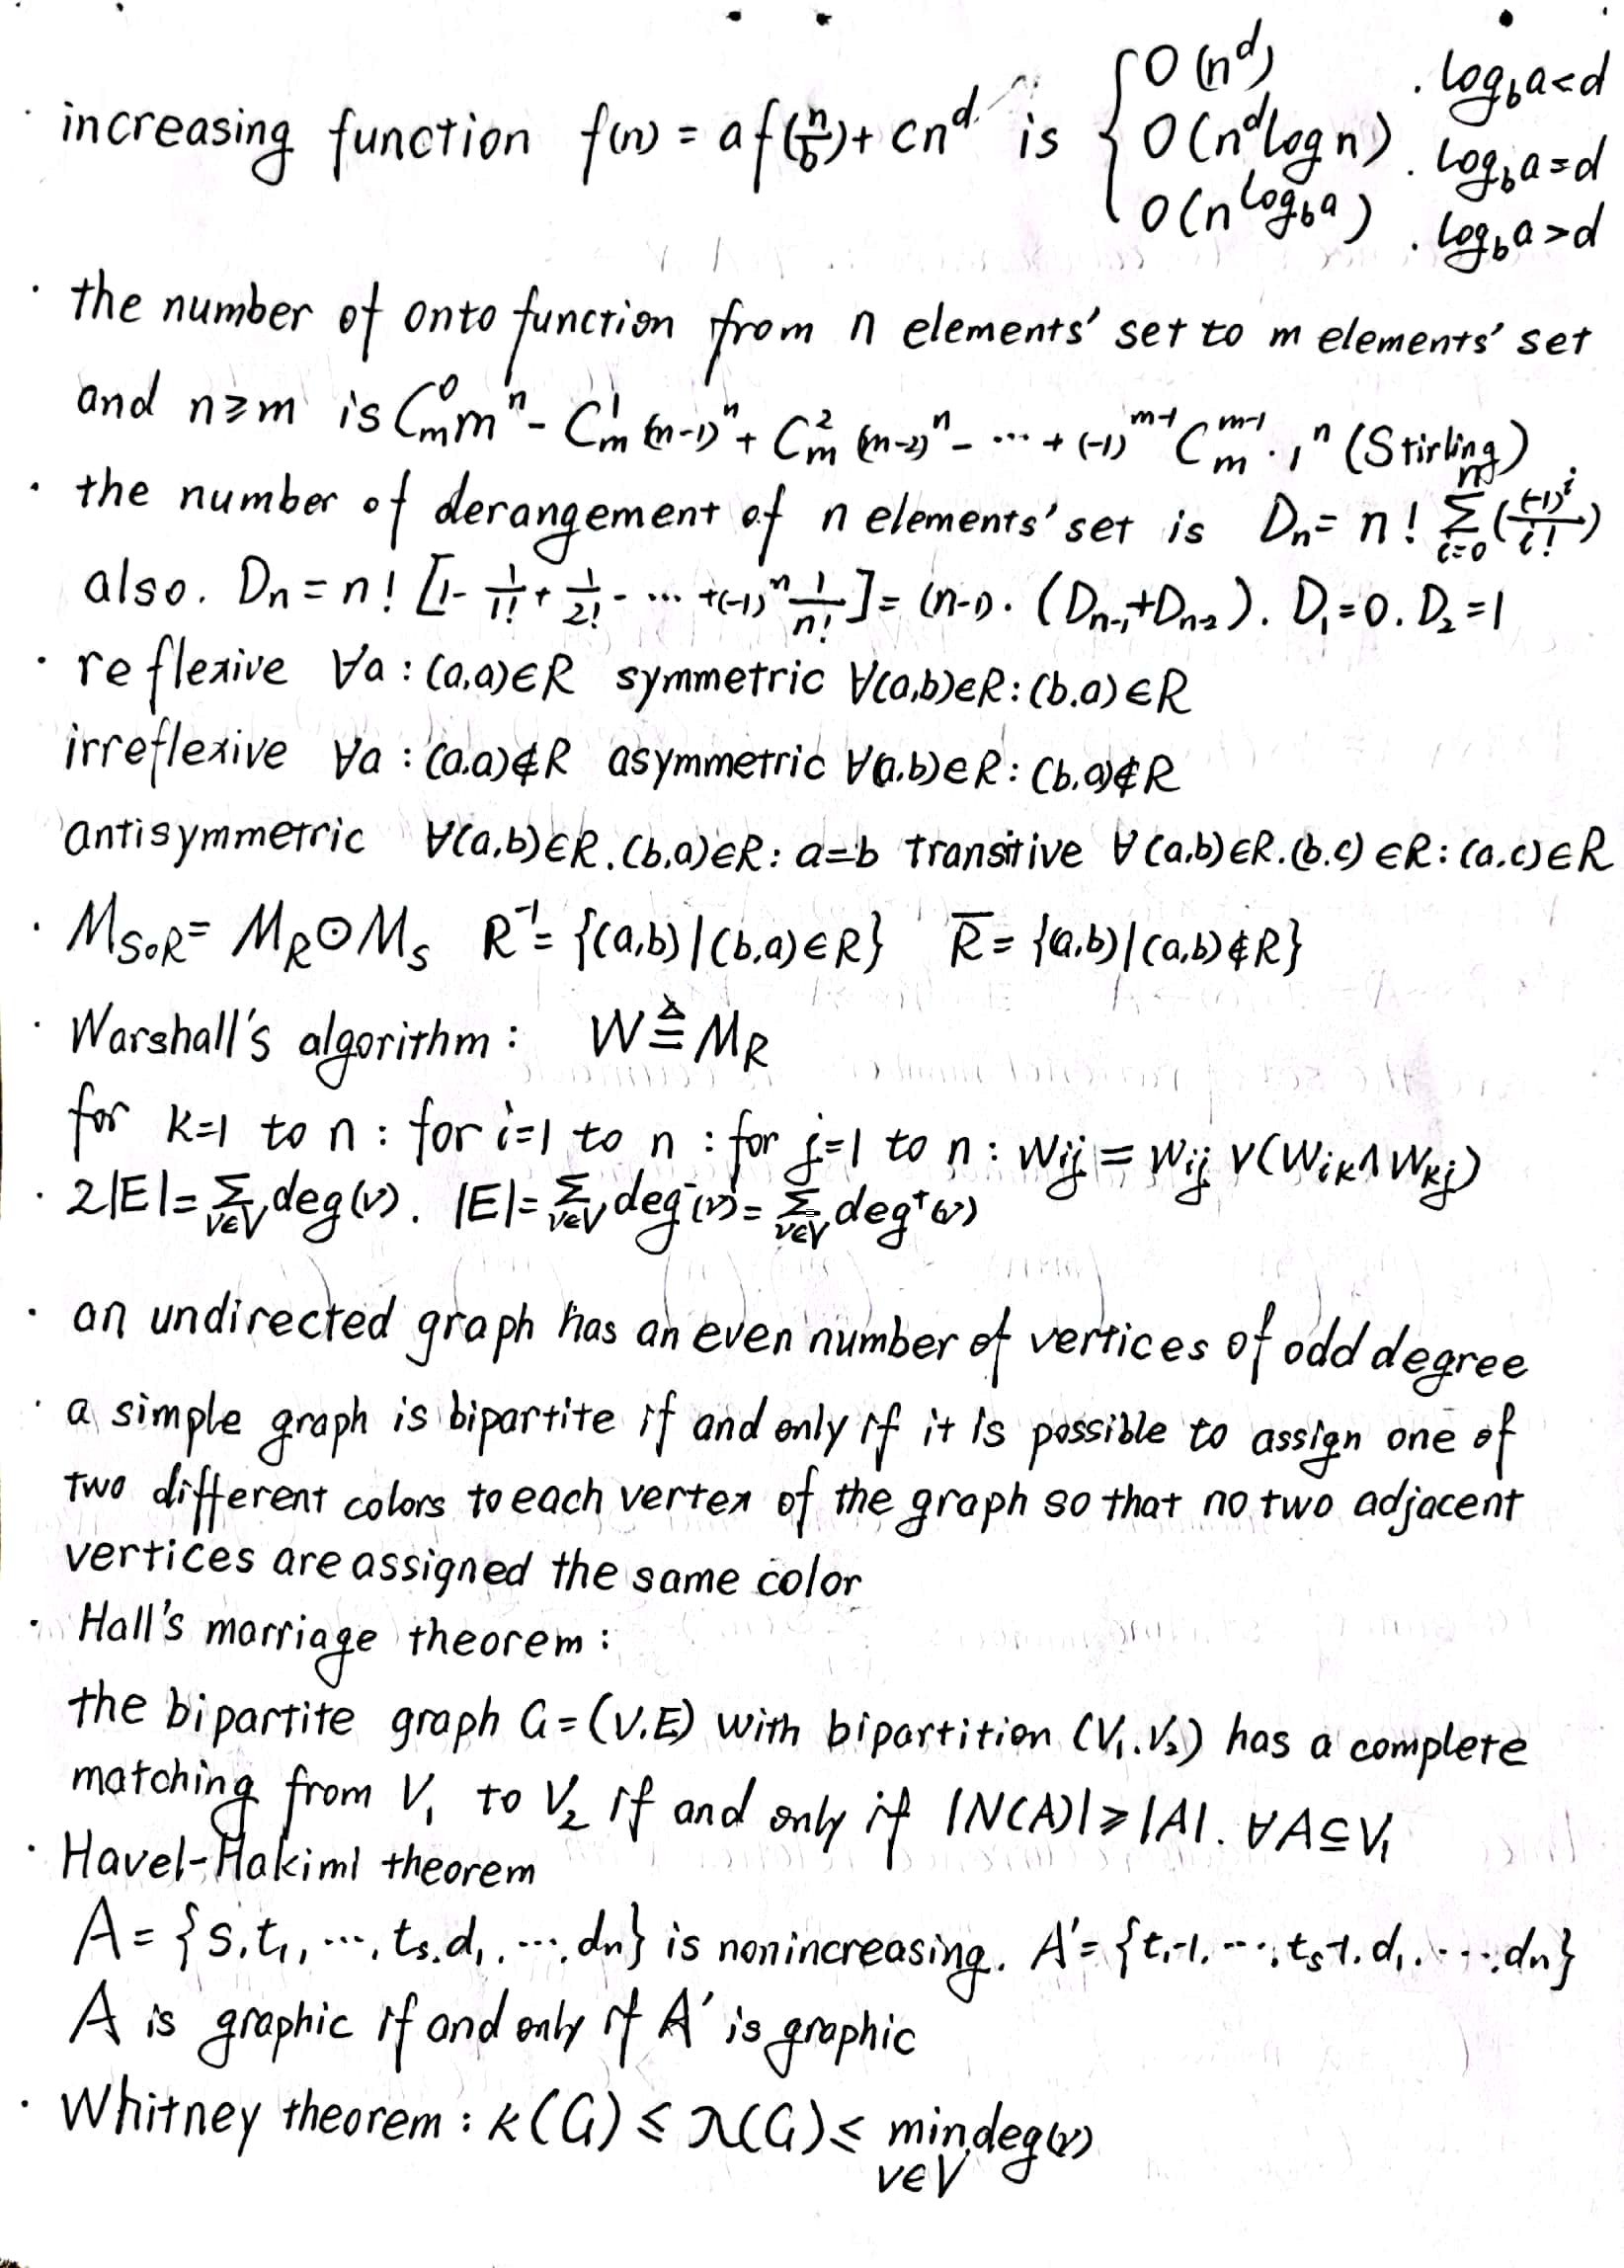 · increasing function f(n) = a f(n/b) + cn^d is { O(n^d) . log_b a < d
O(n^d log n) . log_b a = d
O(n^(log_b a)) . log_b a > d
· the number of onto function from n elements' set to m elements' set
and n ≥ m is C_m^0 m^n - C_m^1 (m-1)^n + C_m^2 (m-2)^n - ··· + (-1)^(m-1) C_m^(m-1) · 1^n (Stirling)
· the number of derangement of n elements' set is D_n = n! Σ_{i=0}^{n} ((-1)^i / i!)
also. D_n = n! [1 - 1/1! + 1/2! - ··· + (-1)^n 1/n!] = (n-1) · (D_{n-1} + D_{n-2}). D_1 = 0. D_2 = 1
· reflexive ∀a : (a,a)∈R symmetric ∀(a,b)∈R : (b,a)∈R
irreflexive ∀a : (a,a)∉R asymmetric ∀(a,b)∈R : (b,a)∉R
antisymmetric ∀(a,b)∈R. (b,a)∈R : a=b transitive ∀(a,b)∈R. (b,c)∈R : (a,c)∈R
· M_{S∘R} = M_R ⊙ M_S R^{-1} = {(a,b) | (b,a)∈R} R̅ = {(a,b) | (a,b)∉R}
· Warshall's algorithm : W ≜ M_R
for k=1 to n : for i=1 to n : for j=1 to n : w_ij = w_ij ∨ (w_ik ∧ w_kj)
· 2|E| = Σ_{v∈V} deg(v). |E| = Σ_{v∈V} deg^-(v) = Σ_{v∈V} deg^+(v)
· an undirected graph has an even number of vertices of odd degree
· a simple graph is bipartite if and only if it is possible to assign one of
two different colors to each vertex of the graph so that no two adjacent
vertices are assigned the same color
· Hall's marriage theorem :
the bipartite graph G = (V.E) with bipartition (V_1. V_2) has a complete
matching from V_1 to V_2 if and only if |N(A)| ≥ |A|. ∀A ⊆ V_1
· Havel-Hakimi theorem
A = {s, t_1, ···, t_s, d_1, ···, d_n} is nonincreasing. A' = {t_1-1, ···, t_s-1, d_1, ···, d_n}
A is graphic if and only if A' is graphic
· Whitney theorem : κ(G) ≤ λ(G) ≤ min_{v∈V} deg(v)